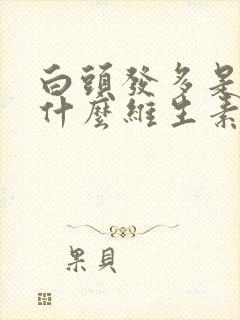 白頭發多是
什麼維生素
果貝